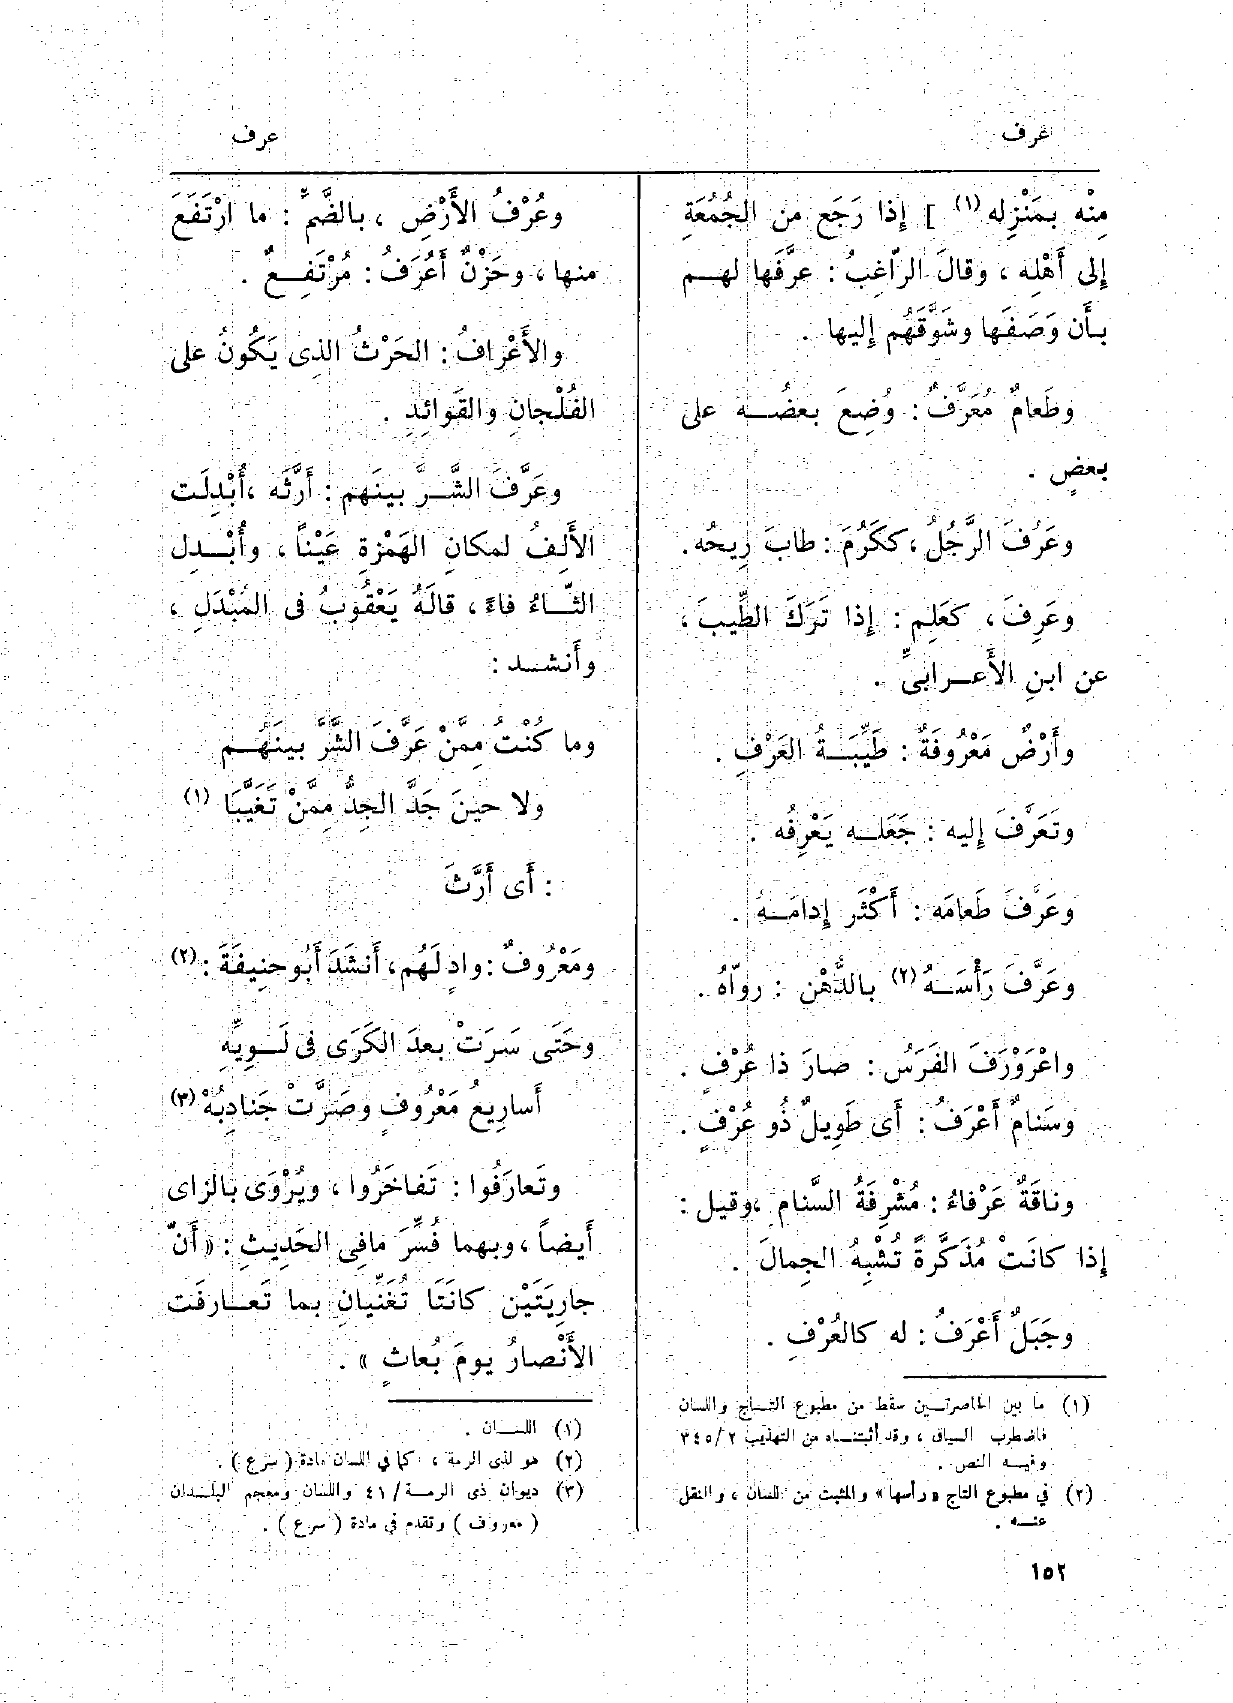 عرف
عرف
مِنْه بمَنْزِله (١) ] إِذا رَجَع من الجُمُعَةِ
إِلى أَهْلِه ، وقالَ الرّاغِبُ : عرَّفَها لهـم
بـأَن وَصَفَها وشَوَّقَهُم إِليها .
وطَعامٌ مُعَرَّفٌ : وُضِعَ بعضُـه على
بعضٍ .
وعَرُفَ الرَّجُلُ ، ككَرُمَ : طابَ رِيحُه .
وعَرِفَ ، كعَلِم : إِذا تَرَكَ الطِّيبَ ،
عن ابنِ الأَعـرابىِّ .
وأَرْضٌ مَعْرُوفَةٌ : طَيِّبَـةُ العَرْفِ .
وتَعَرَّفَ إِليه : جَعَلـه يَعْرِفُه .
وعَرَّفَ طَعامَه : أَكْثَر إِدامَـهُ .
وعَرَّفَ رَأْسَـهُ (٢) بالدُّهْن : روّاهُ .
واعْرَوْرَفَ الفَرَسُ : صارَ ذا عُرْفٍ .
وسَنامٌ أَعْرَفُ : أَى طَوِيلٌ ذُو عُرْفٍ .
وناقَةٌ عَرْفاءُ : مُشْرِفَةُ السَّنام ، وقيل :
إِذا كانَتْ مُذَكَّرةً تُشْبِهُ الجِمالَ .
وجَبَلٌ أَعْرَفُ : له كالعُرْفِ .
(١) ما بين الحاصرتـين سقط من مطبوع التـاج واللسان
فاضطرب السياق ، وقد أثبتنـاه من التهذيب ٢/٣٤٥
وفيـه النص .
(٢) في مطبوع التاج « رأسها » والمثبت من اللسان ، والنقل
عنـه .
وعُرْفُ الأَرْضِ ، بالضَّمِّ : ما ارْتَفَعَ
منها ، وحَزْنٌ أَعْرَفُ : مُرْتَفِـعٌ .
والأَعْرافُ : الحَرْثُ الذِى يَكُونُ على
الفُلْجانِ والقَوائِدِ .
وعَرَّفَ الشَّـرَّ بينَهم : أَرَّثَه ، أُبْدِلَت
الأَلِفُ لمكانِ الهَمْزةِ عَيْناً ، وأُبْـدِل
الثّـاءُ فاءً ، قالَهُ يَعْقُوبُ فى المُبْدَلِ ،
وأَنشـد :
وما كُنْتُ مِمَّنْ عَرَّفَ الشَّرَّ بينَهُـم
ولا حينَ جَدَّ الجِدُّ مِمَّنْ تَغَيَّبَا (١)
: أَى أَرَّثَ
ومَعْرُوفٌ : وادٍ لَهُم ، أَنشَدَ أَبُو حنِيفَةَ : (٢)
وحَتَى سَرَتْ بعدَ الكَرَى فى لَـوِيِّهِ
أَسارِيعُ مَعْرُوفٍ وصَرَّتْ جَنادِبُهْ (٣)
وتَعارَفُوا : تَفاخَرُوا ، ويُرْوَى بالزاى
أَيضاً ، وبهما فُسِّرَ مافى الحَدِيثِ : « أَنّ
جارِيَتَيْن كانَتَا تُغَنِّيانِ بما تَعـارفَت
الأَنْصارُ يومَ بُعاثٍ » .
(١) اللسـان .
(٢) هو لذى الرمة ، كما في اللسان مادة ( سرع ) .
(٣) ديوان ذى الرمـة / ٤١ واللسان ومعجم البلـدان
( معروف ) وتقدم في مادة ( سرع ) .
١٥٢